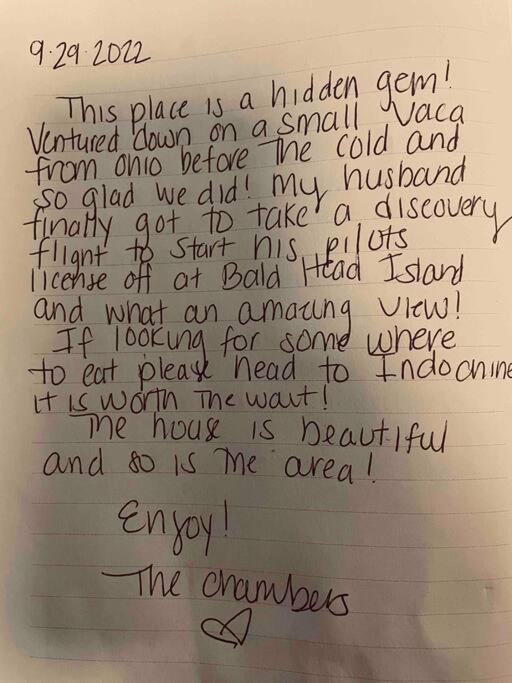 9.29.2022
This place is a hidden gem!
Ventured down on a small vaca
from Ohio before the cold and
so glad we did! My husband
finally got to take a discovery
flight to start his pilots
license off at Bald Head Island
and what an amazing view!
If looking for some where
to eat please head to Indochine
it is worth the wait!
The house is beautiful
and so is the area!
Enjoy!
The Chambers